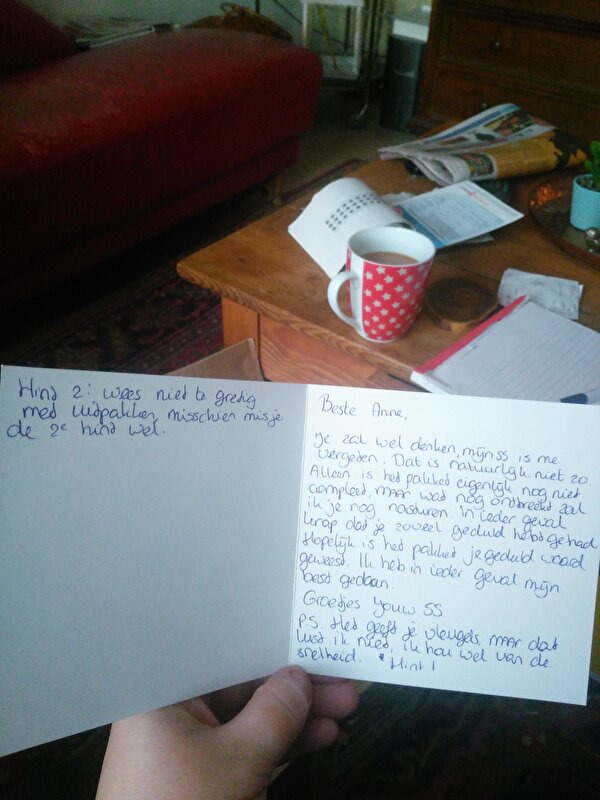 Hint 2: wees niet te gredig
met uitpakken, misschien mis je
de 2e hint wel.
Beste Anne,
Je zal wel denken, mijn SS is me
vergeten. Dat is natuurlijk niet zo.
Alleen is het pakket eigenlijk nog niet
compleet, maar wat nog ontbreekt zal
ik je nog nasturen. In ieder geval
knap dat je zoveel geduld hebt gehad
Hopelijk is het pakket je geduld waard
geweest. Ik heb in ieder geval mijn
best gedaan.
Groetjes Youw SS
P.S. Het geeft je vleugels, maar dat
lust ik niet, ik hou wel van de
snelheid. * Hint 1